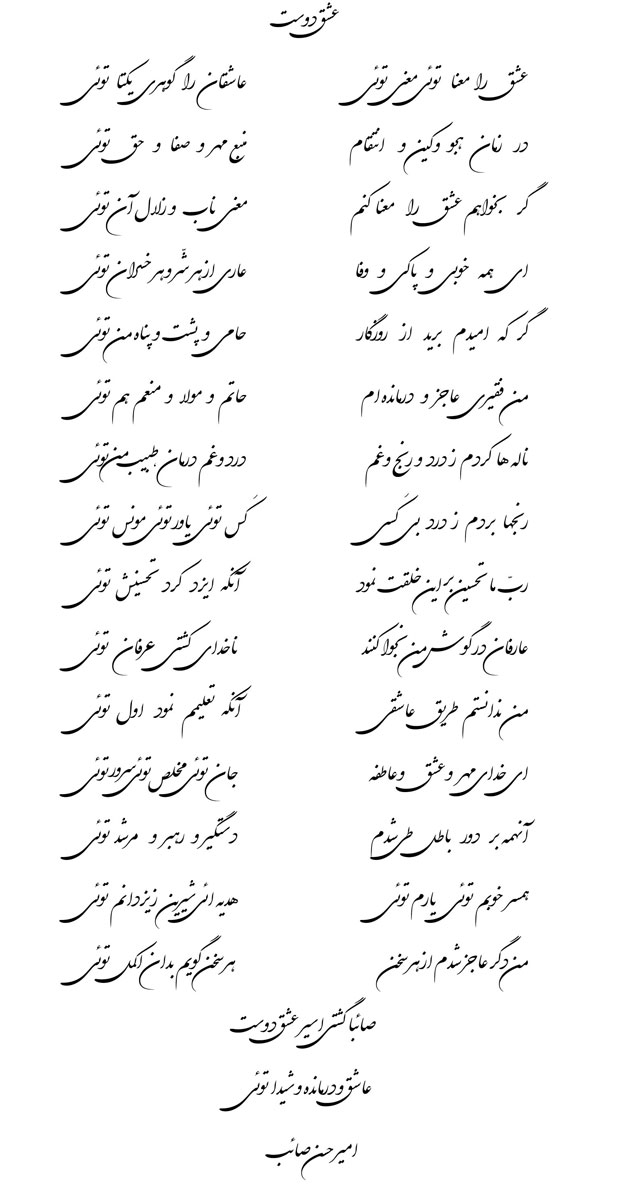 عشق دوست
عشق را معنا توئی معنی توئی عاشقان را گوهری یکتا توئی
در زمان هجو و کین و انتقام منبع مهر و صفا و حق توئی
گر بخواهم عشق را معنا کنم معنی ناب و زلال آن توئی
ای همه خوبی و پاکی و وفا عاری از هر شّر و هر خسران توئی
گر که امیدم برید از روزگار حامی و پشت و پناه من توئی
من فقیری عاجز و درمانده ام حاتم و مولا و منعم هم توئی
ناله ها کردم ز درد و رنج و غم درد و غم درمان طبیب من توئی
رنجها بردم ز درد بی کَسی کَس توئی یاور توئی مونس توئی
ربّ ما تحسین بر این خلقت نمود آنکه ایزد کرد تحسینش توئی
عارفان در گوش من نجوا کنند ناخدای کشتی عرفان توئی
من ندانستم طریق عاشقی آنکه تعلیمم نمود اول توئی
ای خدای مهر و عشق و عاطفه جان توئی مخلص توئی سرور توئی
آنهمه بر دور باطل طی شدم دستگیر و رهبر و مرشد توئی
همسر خوبم توئی یارم توئی هدیه ائی شیرین ز یزدانم توئی
من دگر عاجز شدم از هر سخن هر سخن گویم بدان اکمل توئی
صائبا گشتی اسیر عشق دوست
عاشق و درمانده و شیدا توئی
امیرحسن صائب